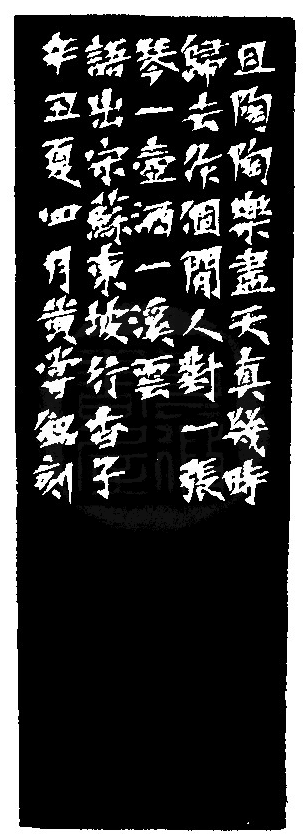 且陶陶樂盡天真幾時
歸去作個閒人對一張
琴一壺酒一溪雲
語出宋蘇東坡行香子
年丑夏四月黃嘗銘刻